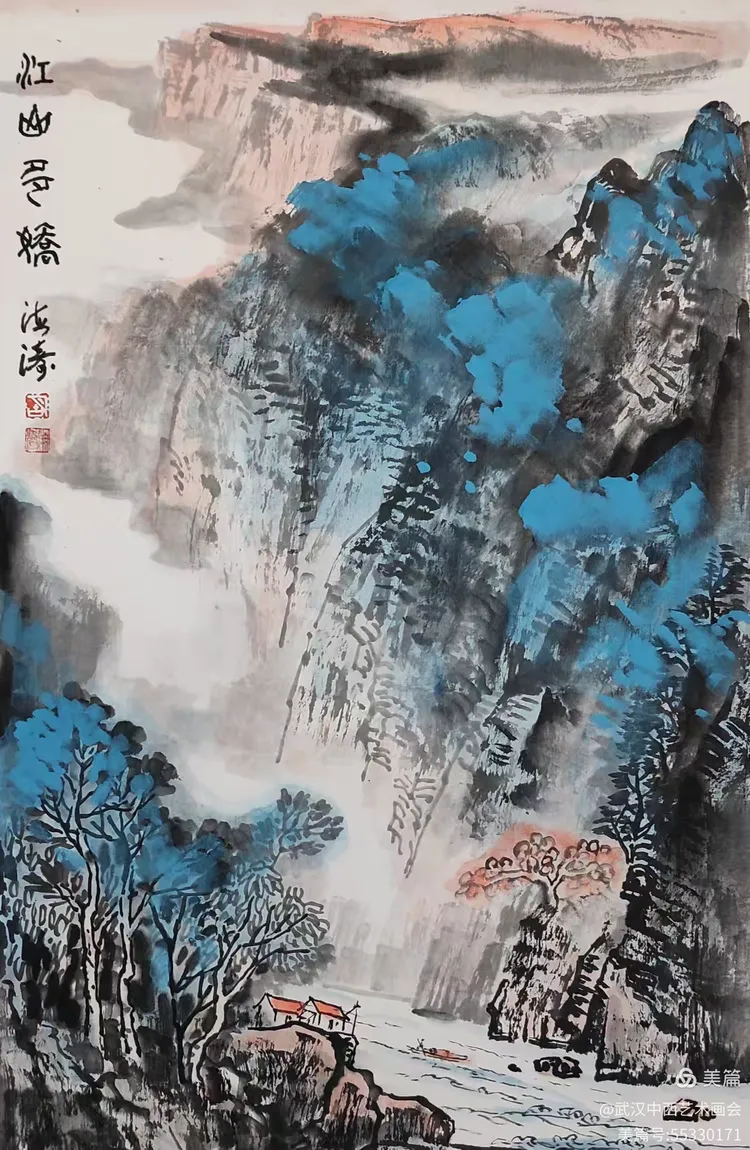 江山多嬌
海涛
美篇
@武汉中西艺术画会
美篇号:55330171